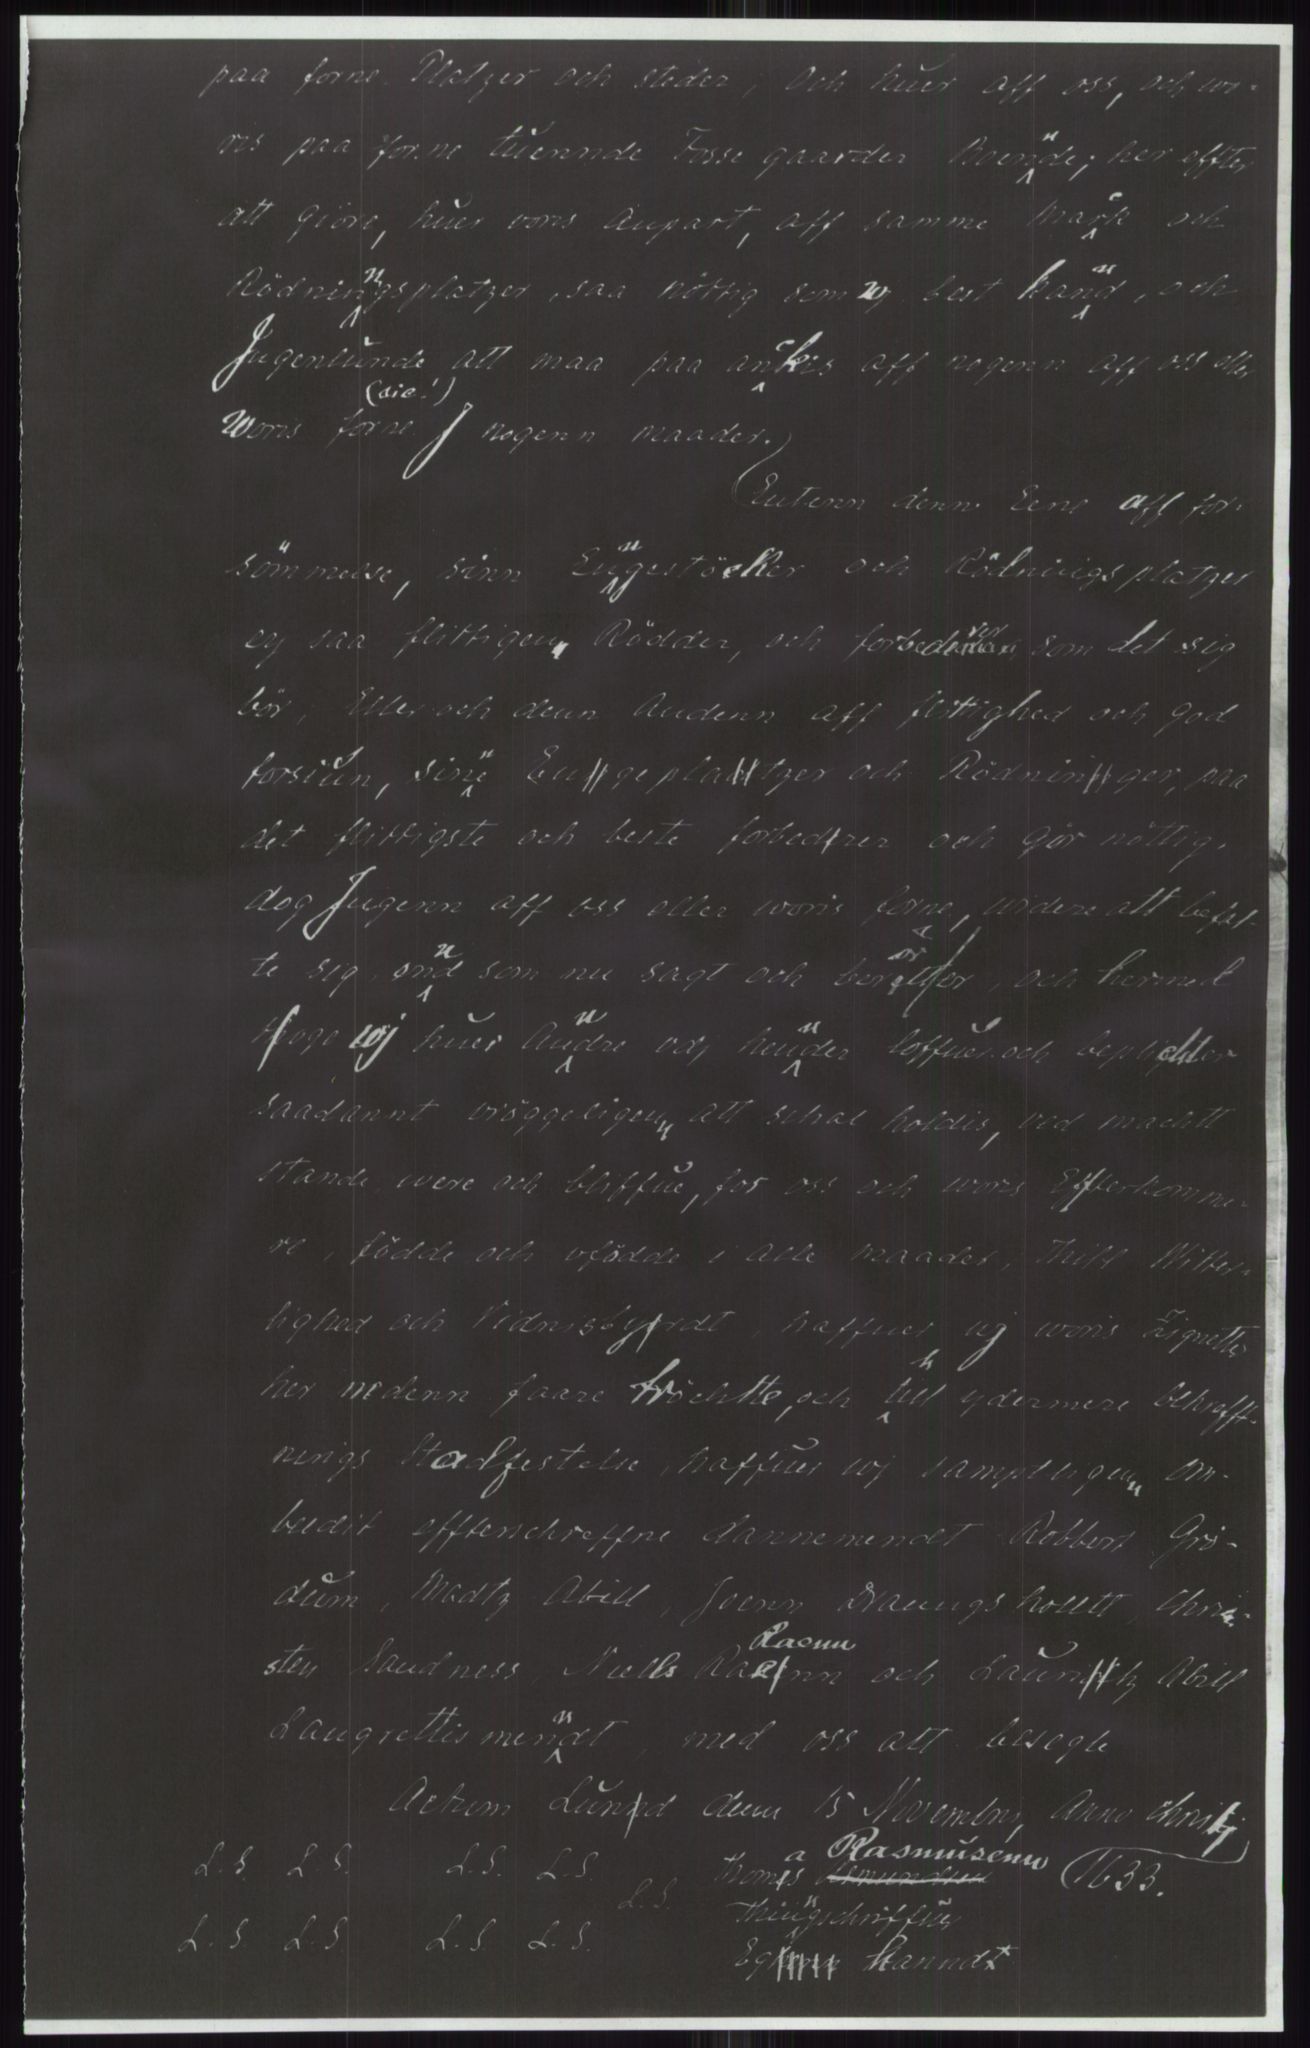 paa forne Platzer och steder, och huer aff oss, och wo-
ris paa forne tuennde Fosse gaarder Boennde, her effter
att giöre, huer voris Anpart, aff samme Mark och
Rödninngsplatzer, saa nöttig som wj best kannd, och
Jngenlunde att maa paa anckis aff nogenn aff oss eller
Woris forne (sic!) J nogenn maader.
Eutenn denn Eene aff for-
sömmelse, sinn Enngestöcker och Rödningsplatzer
ej saa flittigenn Rödder, och forbedrer som det sig
bör, Eller och denn Andenn aff flittighed och god
forsiun, sinne Engeplatzer och Rödninger, paa
det flittigste och beste forbedrer och gör nöttig,
dog Jngenn aff oss eller woris forne, videre att befat-
te sig, ennd som nu sagt och berört er, och hermed
wj huer Anndre vdj hennder loffuer och beplichter
saadannt vröggeligenn att schal holdis, ved machtt
stande, were och bliffue, for oss och woris Effterkomme-
re, födde och vfödde i alle maader, Thill Witter-
lighed och Vidnisbyrdt, haffuer wj woris Zignetter
her nedenn faare tröchtte, och thill ydermere bekrefft-
nings Stadfestelse, haffuer wj sampteligenn om-
bedit effterschreffne dannemendt Robbert Grö-
dum, Madtz Abill, Joenn Haugshollt, Chri-
sten Sandness, Niells Rasmn och Launtz Abill
Laugrettismenndt, med oss att besegle
Actum Lund denn 15 Novembrj Anno Christj
1633.
L.S. L.S. L.S. L.S. Thomas Rasmusenn
L.S. Thinngschriffuer
L.S. L.S. L.S. L.S. Eg Hanndt